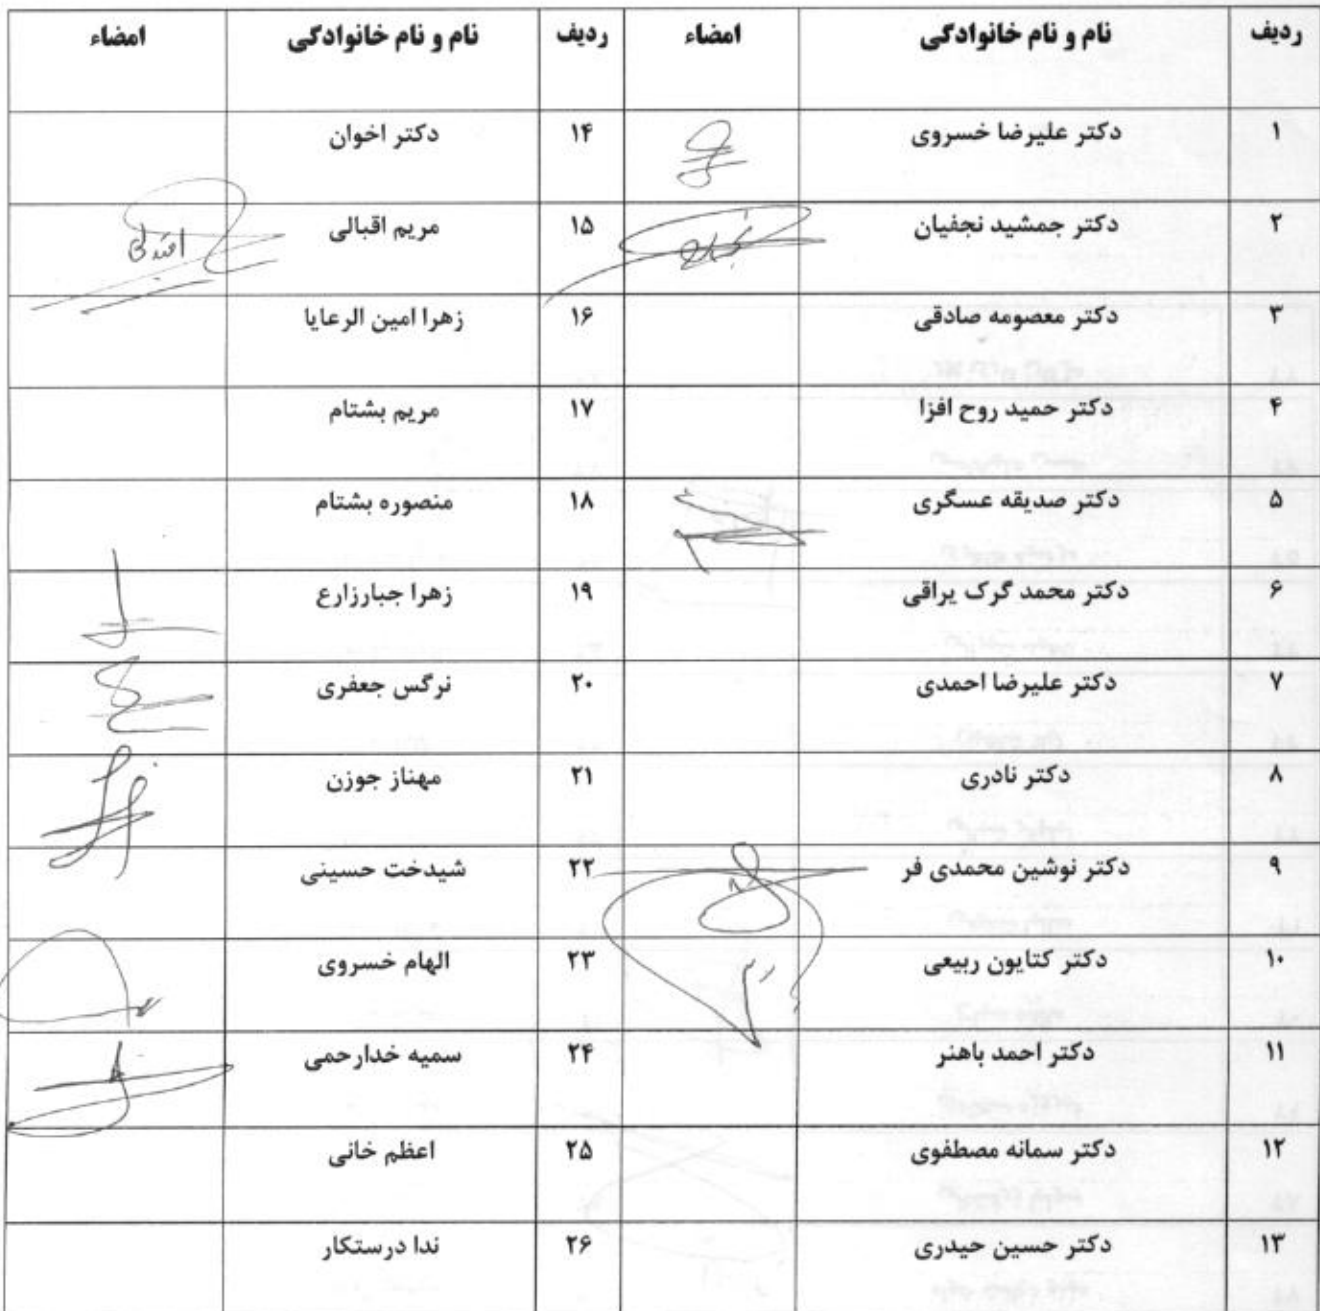 ردیف نام و نام خانوادگی امضاء ردیف نام و نام خانوادگی امضاء
۱ دکتر علیرضا خسروی ۱۴ دکتر اخوان
۲ دکتر جمشید نجفیان ۱۵ مریم اقبالی اقبالی
۳ دکتر معصومه صادقی ۱۶ زهرا امین الرعایا
۴ دکتر حمید روح افزا ۱۷ مریم بشتام
۵ دکتر صدیقه عسگری ۱۸ منصوره بشتام
۶ دکتر محمد گرک یراقی ۱۹ زهرا جبارزارع
۷ دکتر علیرضا احمدی ۲۰ نرگس جعفری
۸ دکتر نادری ۲۱ مهناز جوزن
۹ دکتر نوشین محمدی فر ۲۲ شیدخت حسینی
۱۰ دکتر کتایون ربیعی ۲۳ الهام خسروی
۱۱ دکتر احمد باهنر ۲۴ سمیه خدارحمی
۱۲ دکتر سمانه مصطفوی ۲۵ اعظم خانی
۱۳ دکتر حسین حیدری ۲۶ ندا درستکار